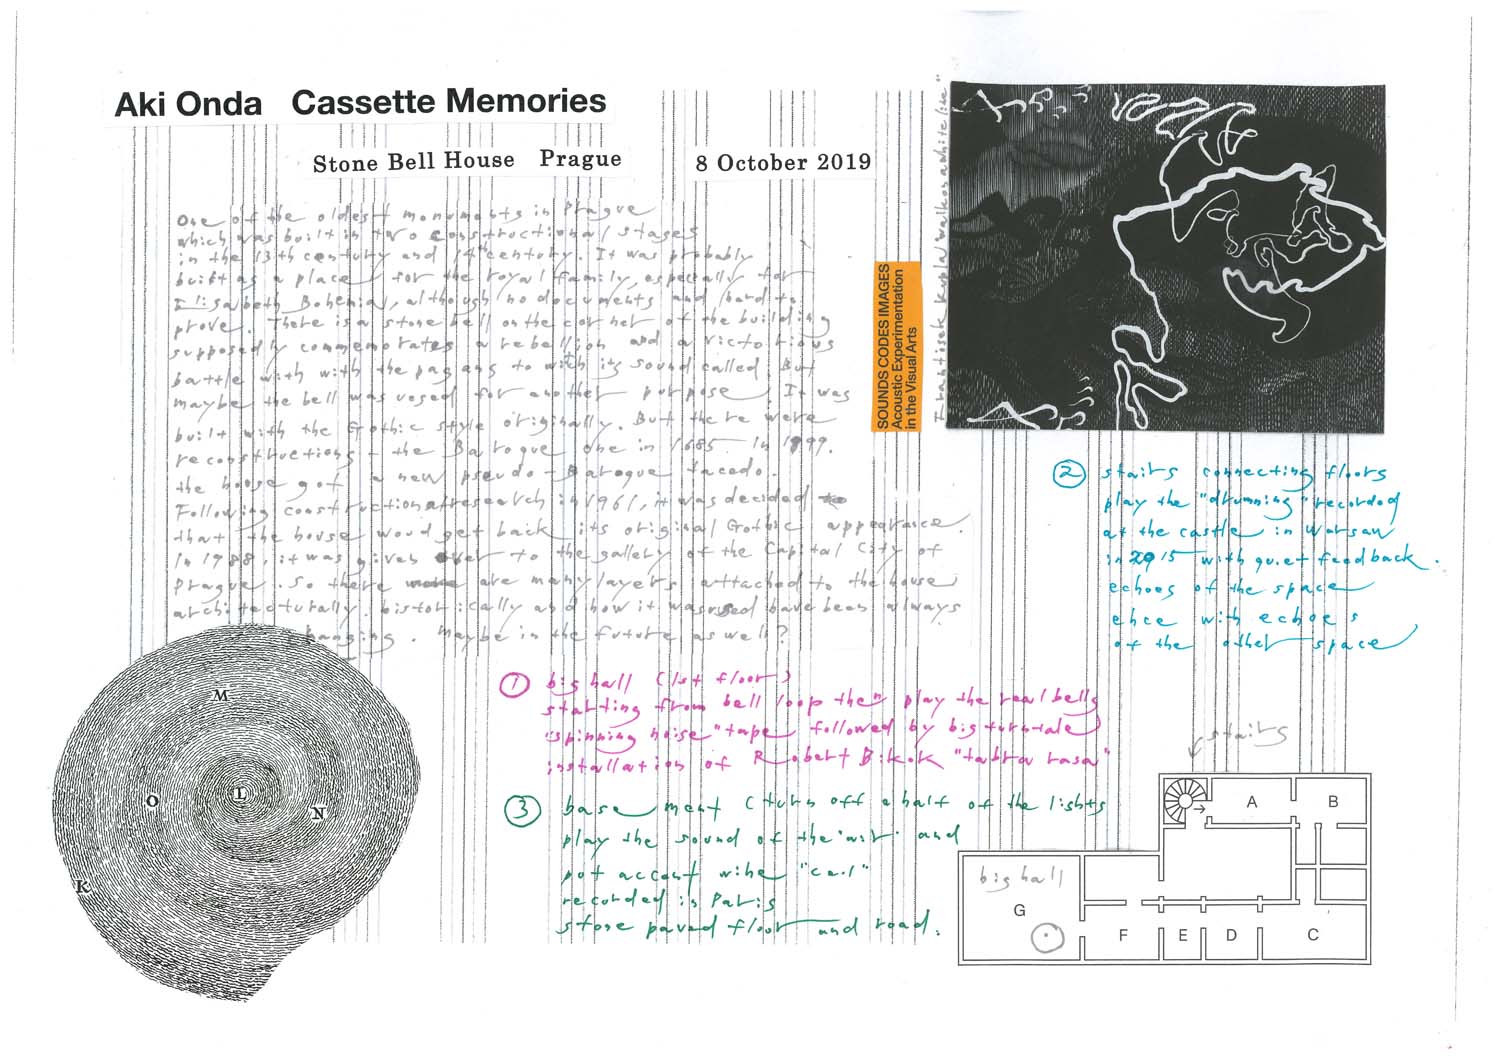 Aki Onda Cassette Memories
Stone Bell House Prague
8 October 2019
One of the oldest monuments in Prague
which was built in two constructional stages
in the 13th century and 14th century. It was probably
built as a place for the royal family, especially for
Elisabeth Bohemia, although no documents and hard to
prove. There is a stone bell on the corner of the building
supposedly commemorates a rebellion and a victorious
battle with with the pagans to with its sound called. But
maybe the bell was used for another purpose. It was
built with the Gothic style originally. But there were
reconstructions - the Baroque one in 1685. In 1899.
the house got a new pseudo-Baroque facedo.
Following construction research in 1961, it was decided
that the house woud get back its original Gothic appearance.
In 1988, it was given over to the gallery of the Capital City of
Prague. So there are many layers attached to the house
architecturally. historically and how it was used have been always
hanging. Maybe in the future as well?
SOUNDS CODES IMAGES
Acoustic Experimentation
in the Visual Arts
Frantisek Kupka "walkes a white line"
② stairs connecting floors
play the "drumning" recorded
at the castle in Warsaw
in 2015 with quiet feedback.
echoes of the space
ehce with echoes
of the other space
① big hall (1st floor)
starting from bell loop then play the real bells
"spinning noise" tape followed by big turntale
installation of Robert "tabra rasa"
③ basement (turn off a half of the lights
play the sound of the and
pot accent
recorded in Paris
stone paved floor and road.
M
O
L
N
K
stairs
A
B
big hall
G
F
E
D
C